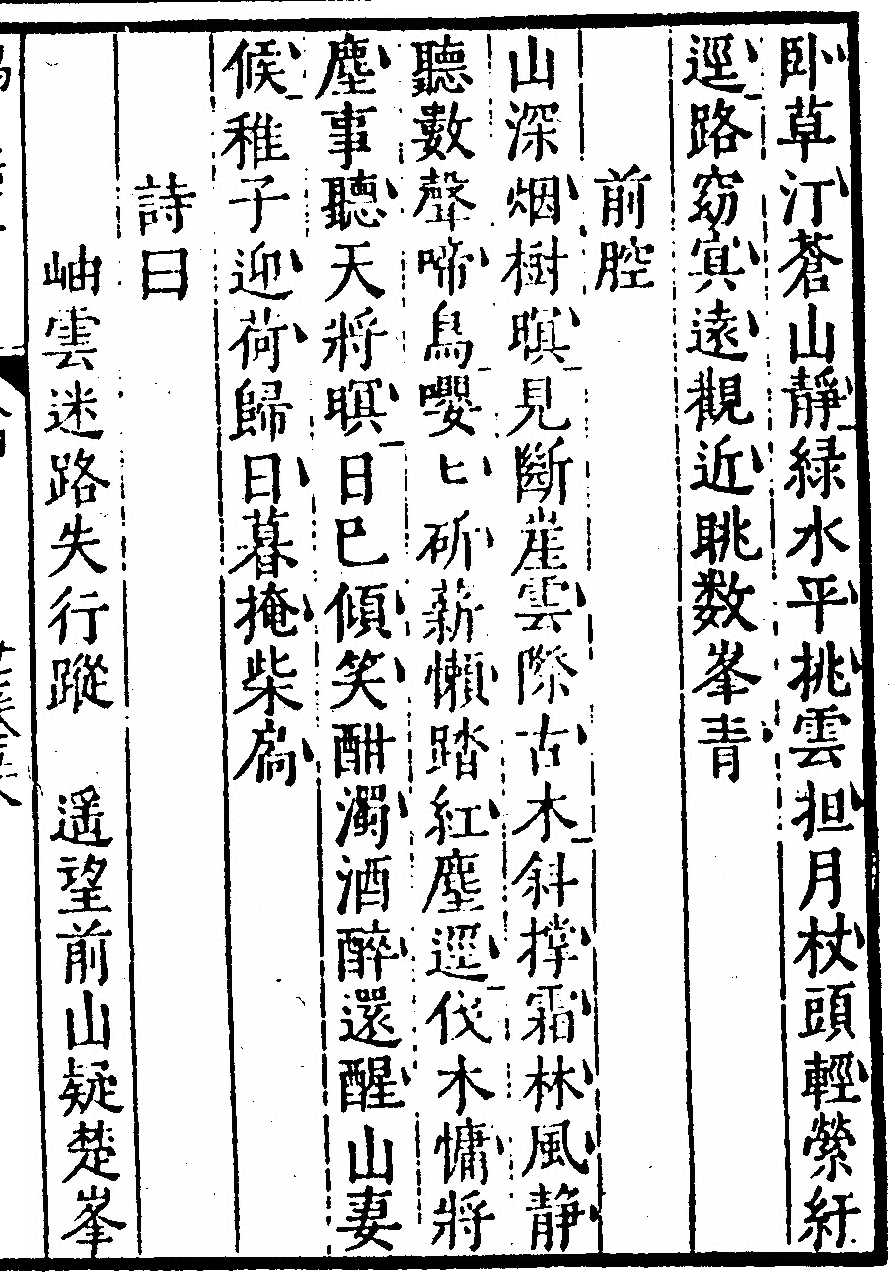 卧草汀蒼山靜緑水平挑雲担月杖頭輕縈紆
逕路窈窅遠觀近眺数峯青
前腔
山深烟樹暝見斷崖雲際古木斜撑霜林風静
聽數聲啼鳥嚶匕斫薪懶踏紅塵逕伐木慵將
塵事聽天將暝日已傾笑酣濁酒醉還醒山妻
候稚子迎荷歸日暮掩柴扃
詩曰
岫雲迷路失行蹤　遥望前山疑楚峯